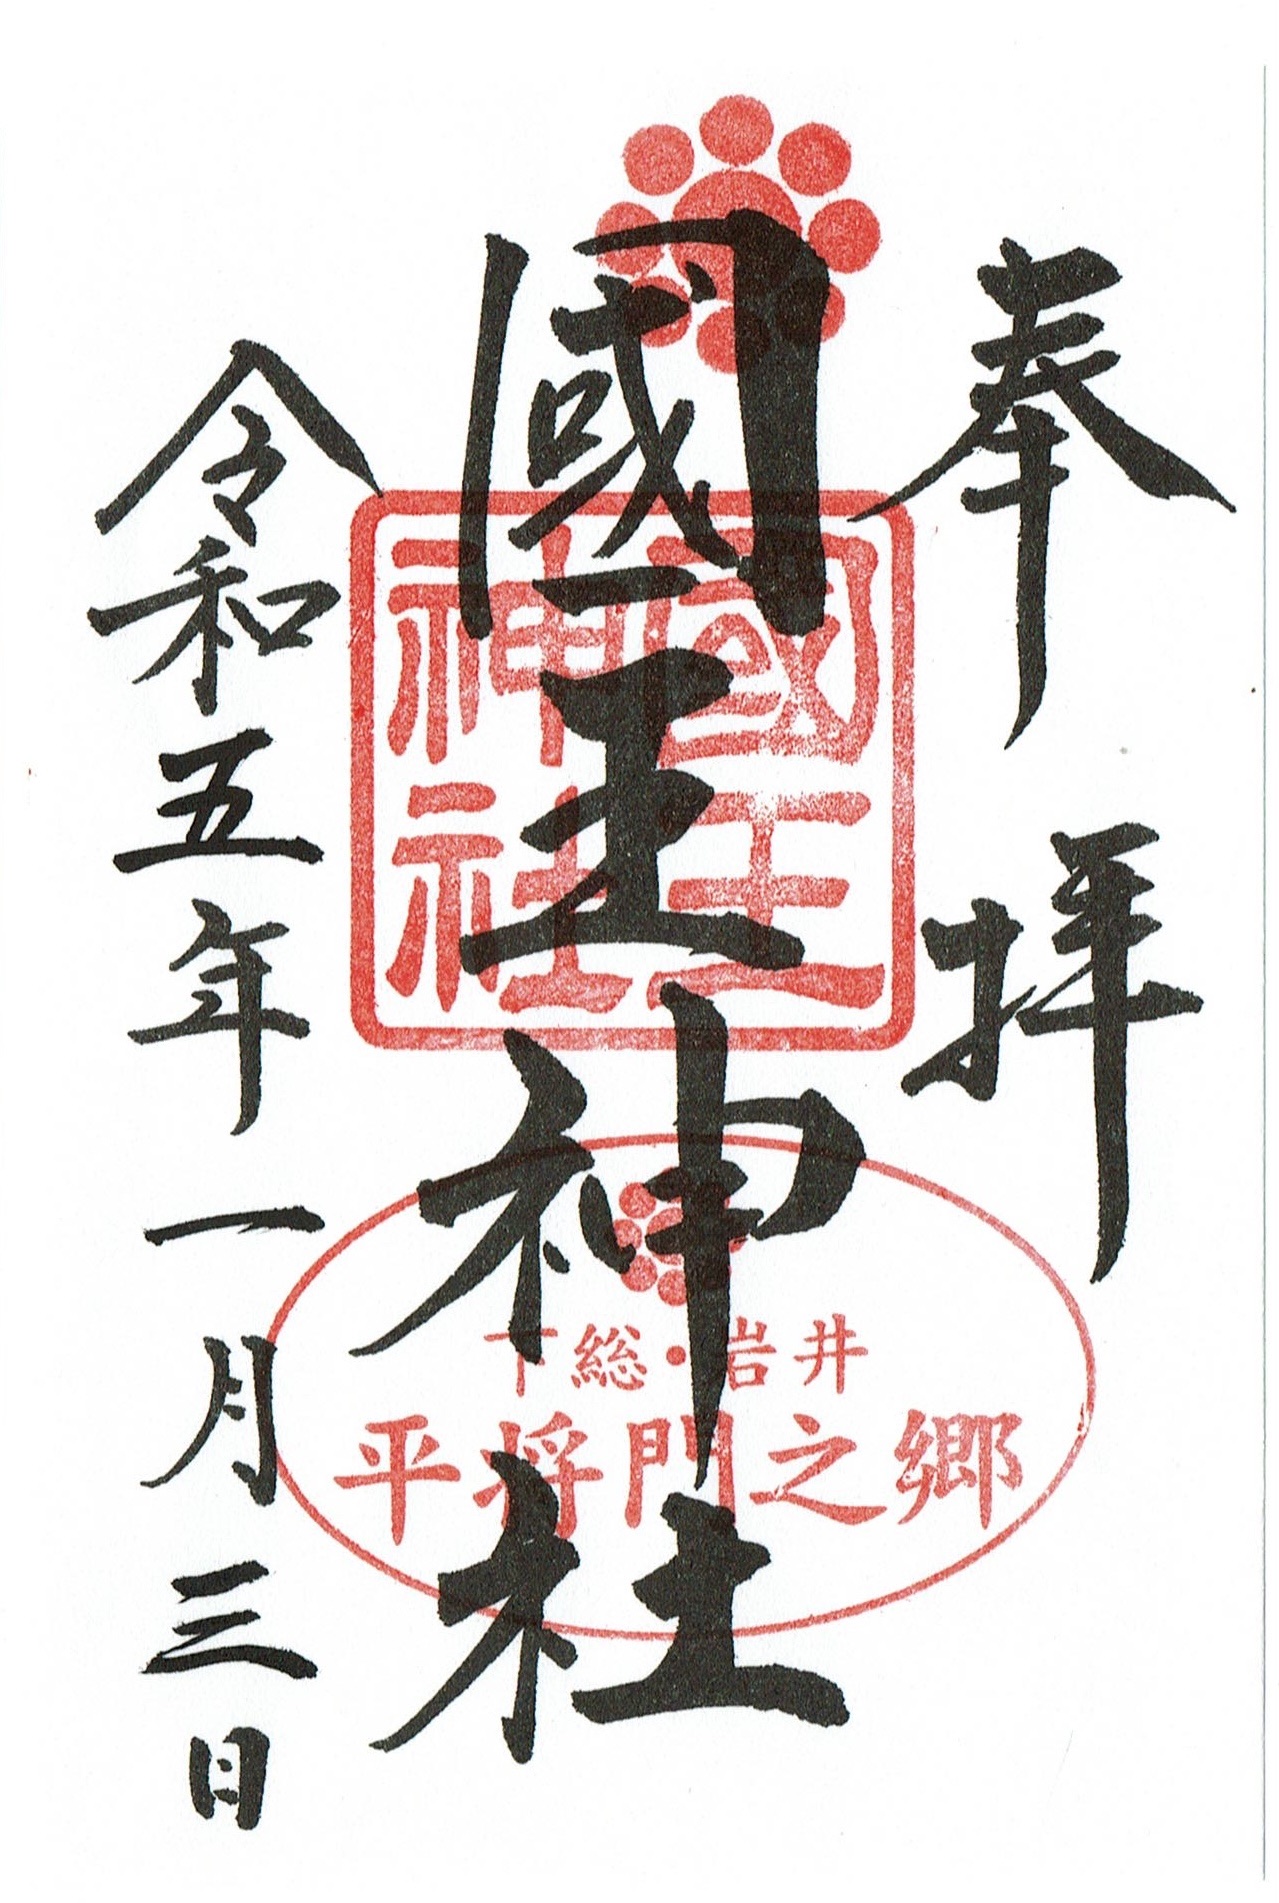 奉拝
國王神社
國王
神社
下総・岩井
平将門之郷
令和五年一月三日